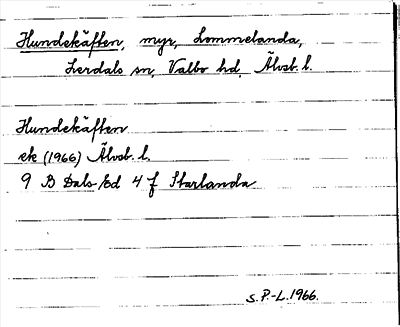 Hundekäften, myr, Lommelanda,
Lerdals sn, Valbo hd, Älvsb. l.
Hundekäften
ek (1966) Älvsb. l.
9 B Dals-Ed 4 f Starlanda
S. P.-L. 1966.